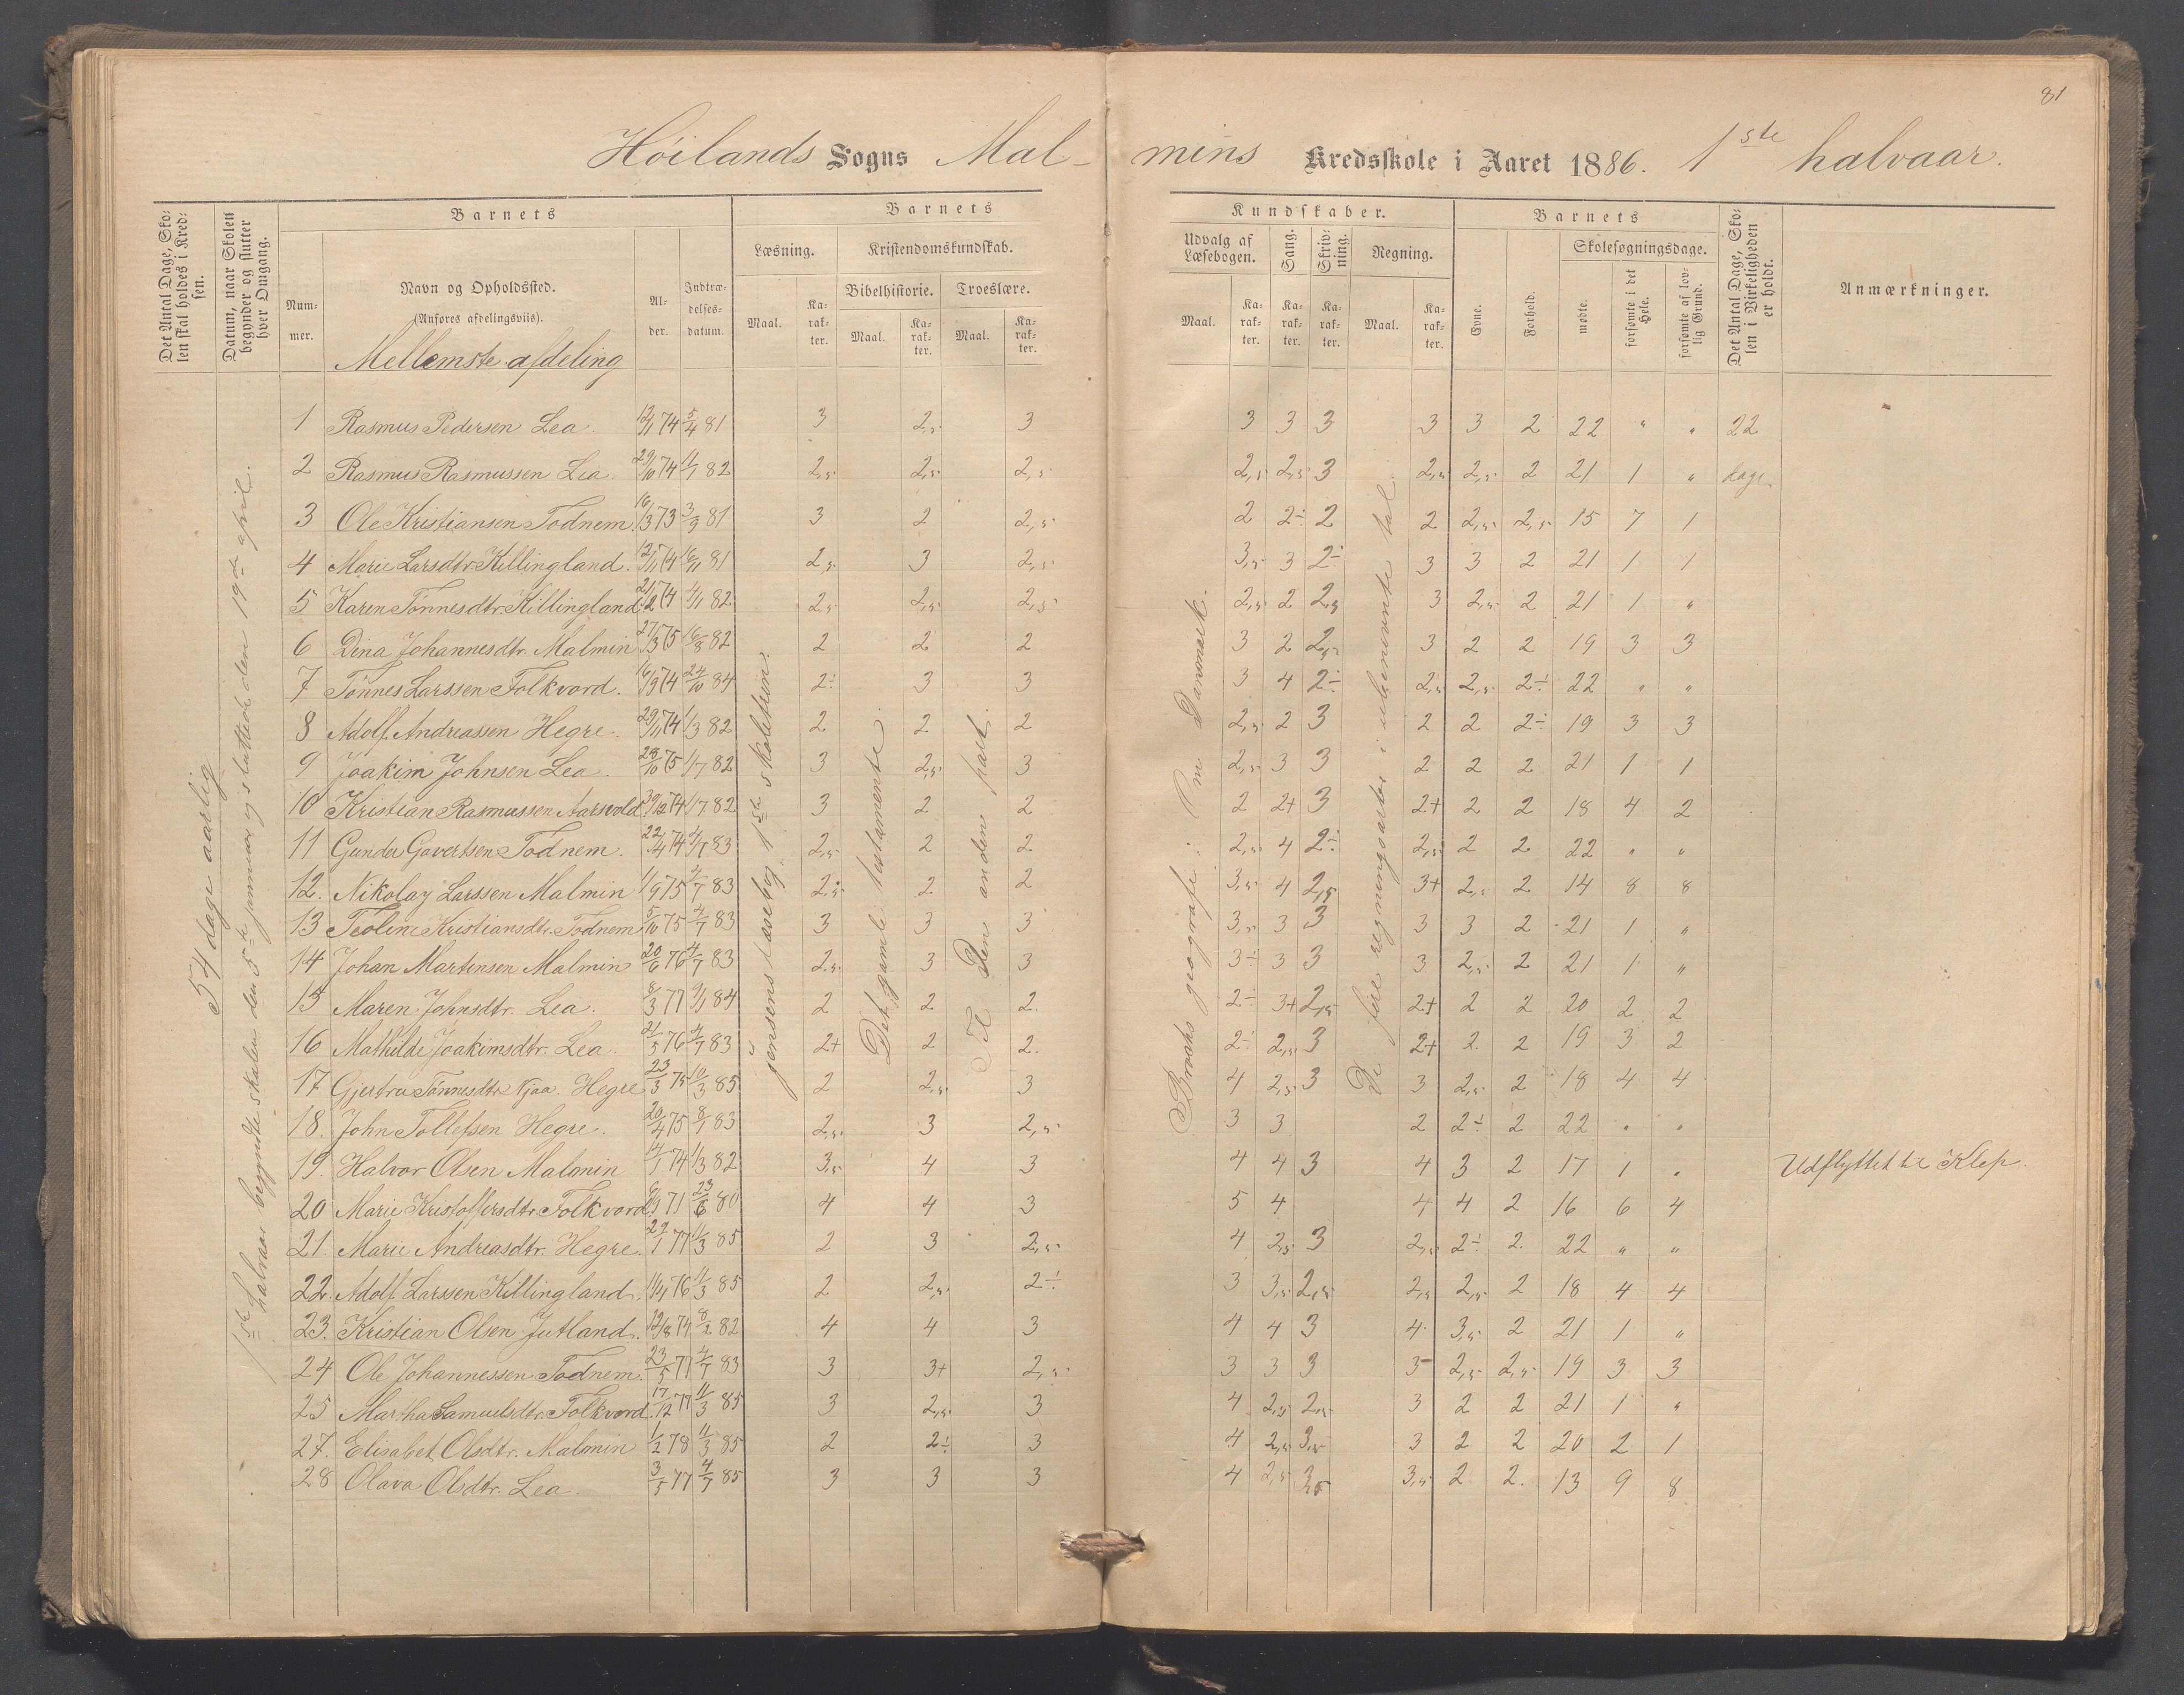 81
Höilands Sogns Malmins Kredsskole i Aaret 1886. 1ste halvaar.
Det Antal Dage, Skolen skal holdes i Kredsen.
Datum, naar Skolen begynder og slutter hver Omgang.
Barnets
Nummer.
Navn og Opholdssted.
(Anføres afdelingsviis).
Mellemste afdeling
Alder.
Indtrædelsesdatum.
Barnets Kundskaber.
Læsning.
Kristendomskundskab.
Bibelhistorie. Troeslære.
Maal. Karakter. Maal. Karakter. Maal. Karakter.
Udvalg af Læsebogen. Sang. Skrivning. Regning.
Maal. Karakter. Karakter. Karakter. Maal. Karakter.
Barnets
Evne. Forhold.
Skolesøgningsdage.
mødte. forsømte i det Hele. forsømte af lovlig Grund.
Det Antal Dage, Skolen i Virkeligheden er holdt.
Anmærkninger.
54 dage aarlig
1ste halvaar begyndte skolen den 5te januar og sluttede den 19de april.
Jensens læsebog, 1ste skoletrin.
Det gamle testamente.
Til den anden part.
Brochs geografi: Om Danmark.
De fire regningsarter i ubenævnte tal.
1 Rasmus Pedersen Lea. 12/1 74 5/4 81 3 2,5 3 3 3 3 3 3 2 22 " " 22
2 Rasmus Rasmussen Lea. 29/10 74 11/1 82 2,5 2,5 2,5 2,5 2,5 3 2,5 2,5 2 21 1 " dage
3 Ole Kristiansen Todnem. 16/3 73 3/3 81 3 2 2,5 2 2÷ 2 2 2,5 2,5 15 7 1
4 Marie Larsdtr. Killingland. 74 81 2,5 3 2,5 3,5 3 2÷ 3 3 2 21 1 1
5 Karen Tönnesdtr. Killingland. 21/2 74 82 2,5 2,5 2,5 2,5 2 2,5 3 2,5 2 21 1 "
6 Dina Johannesdtr. Malmin 27/3 75 16/8 82 2 2 2 3 2 2,5 3 2 2 19 3 3
7 Tönnes Larssen Folkvord. 16/9 74 24/10 84 2÷ 3 3 3 4 2÷ 2,5 2,5 2÷ 22 " "
8 Adolf Andreassen Hegre. 29/11 74 1/3 82 2 2 2 2,5 2 3 2 2 2÷ 19 3 3
9 Joakim Johnsen Lea. 28/10 75 1/7 82 3 2,5 3 2,5 3 3 2 2 2 21 1 1
10 Kristian Rasmussen Aarsvold 30/12 74 1/7 82 3 2 2 2 2+ 3 2+ 2 2 18 4 2
11 Gunder Govertsen Todnem. 22/4 74 4/7 83 2,5 2 2 2,5 4 2÷ 2,5 2 2 22 " "
12. Nikolay Larssen Malmin 1/9 75 4/7 83 2,5 2 2 3,5 4 2,5 3+ 2,5 2 14 8 8
13 Teoline Kristiansdtr. Todnem 5/10 75 4/7 83 3 3 3 3,5 3 3 3 3 2 21 1 "
14 Johan Martinsen Malmin 20/6 76 4/7 83 2,5 3 3 3÷ 3 3 3 2,5 2 21 1 "
15 Maren Johnsdtr. Lea. 8/3 77 9/1 84 2 2 2. 2÷ 3+ 2,5 2+ 2 2 20 2 2
16 Mathilde Joakimsdtr. Lea. 21/5 76 4/7 83 2+ 2 2. 2÷ 2,5 3 2+ 2. 2 19 3 2
17 Gjertru Tönnesdtr. Njaa. Hegre 23/3 75 10/3 85 2 2,5 3 4 2,5 3 3 2,5 2 18 4 4
18. John Tollefsen Hegre. 20/4 75 8/1 83 2,5 3 2,5 3 3 2 2÷ 2 22 " "
19. Halvor Olsen Malmin 14/1 74 1/3 82 3,5 4 3 4 4 3 4 3 2 17 1 " Udflyttet til Klep.
20 Marie Kristoffersdtr. Folkvord. 71 23/6 80 4 4 3 5 4 4 4 2 16 6 4
21. Marie Andreasdtr. Hegre. 77 11/3 85 2 3 2,5 4 2,5 3 2,5 2÷ 2. 22 " "
22. Adolf Larssen Killingland. 76 11/3 85 2 2,5 2÷ 3 3,5 2,5 2,5 2,5 2 18 4 4
23. Kristian Olsen Jutland. 74 8/2 82 4 4 3 4 4 3 4 3,5 2 21 1 "
24 Ole Johannessen Todnem. 23/5 77 4/7 83 3 3+ 2,5 3 3 3 3 2,5 2,5 19 3 3
25 Martha Samuelsdtr. Folkvord. 17/12 77 11/3 85 3 2,5 3 4 2,5 2,5 3 2 2 21 1 "
27. Elisabet Olsdtr. Malmin 1/2 78 11/3 85 2 2÷ 3 4 2,5 3,5 3 2 2 20 2 1
28 Olava Olsdtr. Lea. 3/5 77 4/7 85 3 3 3 4 2,5 3,5 3,5 2 2. 13 9 8